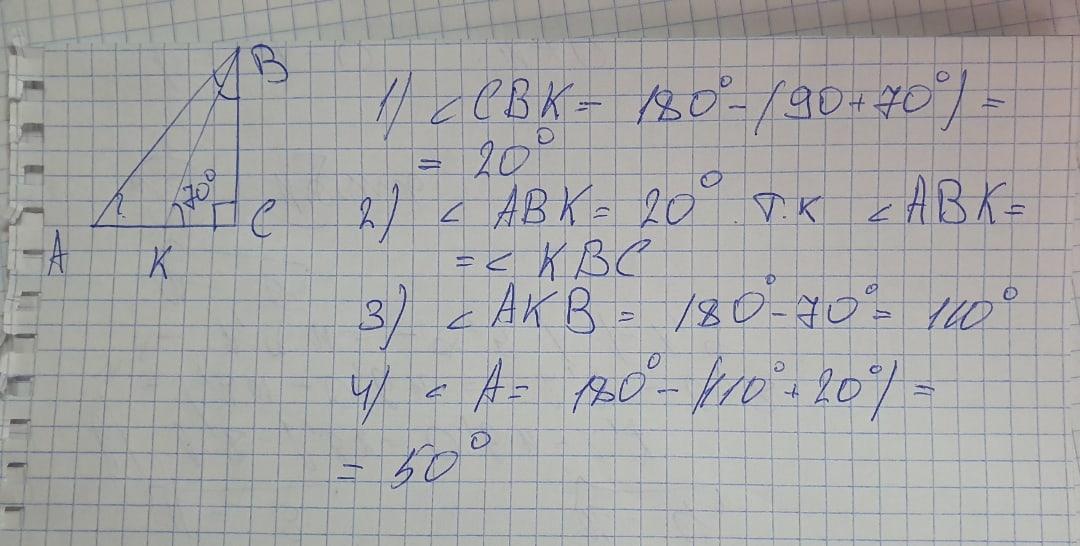 B
1) < CBK = 180° - (90 + 70°) =
= 20°
70°
2) < ABK = 20°. т.к < ABK =
C
A
K
= < KBC
3) < AKB = 180° - 70° = 110°
4) < A = 180° - (110° + 20°) =
= 50°